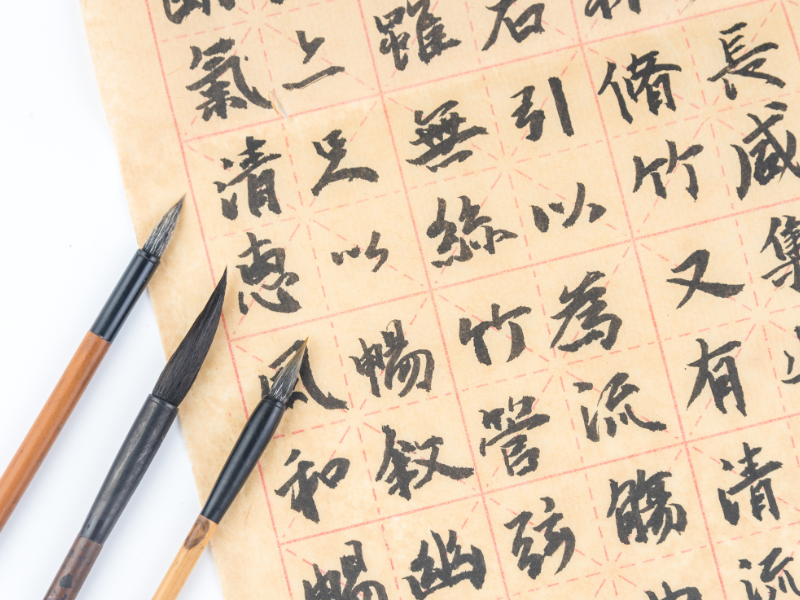 長咸集
脩竹又有清流
右引以為流觴
雖無絲竹管弦
亦足以暢敘幽
氣清惠風和暢